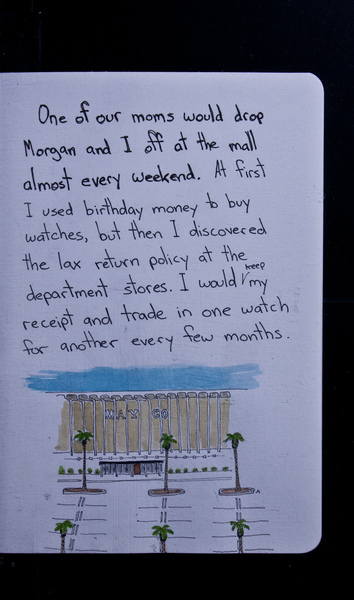 One of our moms would drop
Morgan and I off at the mall
almost every weekend. At first
I used birthday money to buy
watches, but then I discovered
the lax return policy at the
department stores. I would keep my
receipt and trade in one watch
for another every few months.
MAY CO